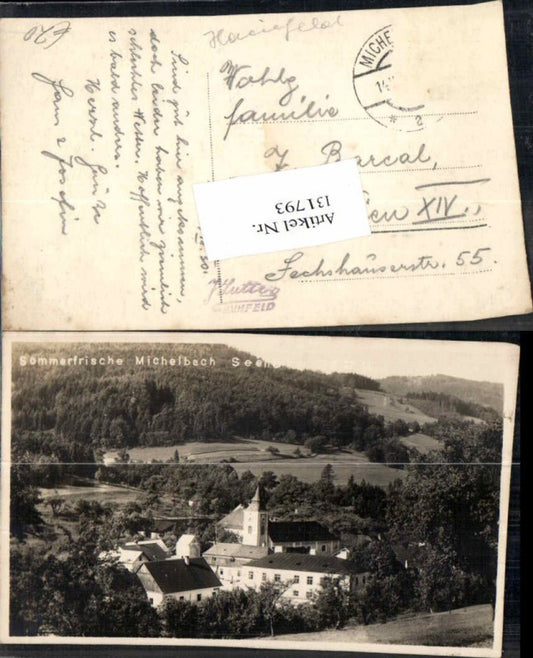 €20
Hainfeld
MICHE
14.
* a
Sind gut hier angekommen,
doch leider haben wir ziemlich
schlechtes Wetter. Hoffentlich wird
es bald anders.
Herzl. Grüße
Hans & Josefine
Wohlg
familie
J. Barcal,
Wien XIV.,
Sechshauserstr. 55.
Artikel Nr.
131.793
Sommerfrische Michelbach